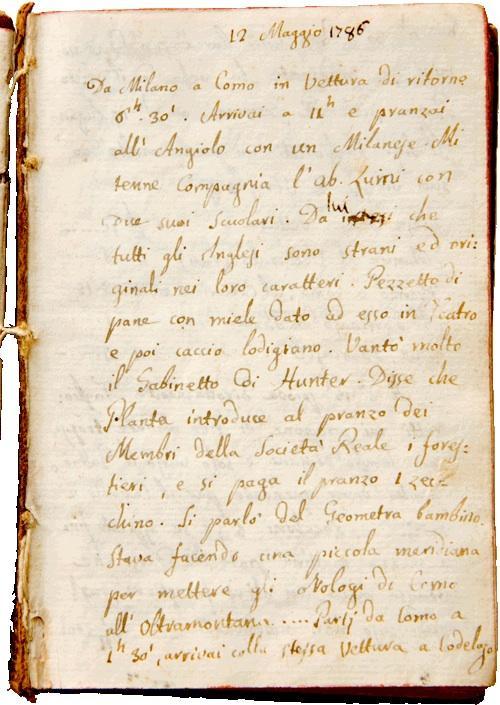 12 Maggio 1786
Da Milano a Como in Vettura di ritorno
6h. 30'. Arrivai a 11h e pranzai
all' Angiolo con un Milanese. Mi
tenne Compagnia l'ab. con
due suoi Scuolari. Da lui che
tutti gli Inglesi sono strani ed ori:
ginali nei loro caratteri. Pezzetto di
pane con miele dato ad esso in Teatro
e poi caccio lodigiano. Vantò molto
il Gabinetto di Hunter. Disse che
Planta introduce al pranzo dei
Membri della Società Reale i fores:
tieri, e si paga il pranzo 1 zec:
chino. Si parlò del Geometra bambino.
Stava facendo una piccola meridiana
per mettere gli orologi di Como
all' Oltramontana ..... Partij da Como a
1h 30', arrivai colla stessa Vettura a